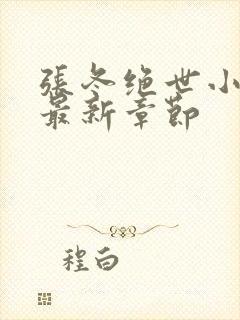 張冬绝世小
最新章節
程白